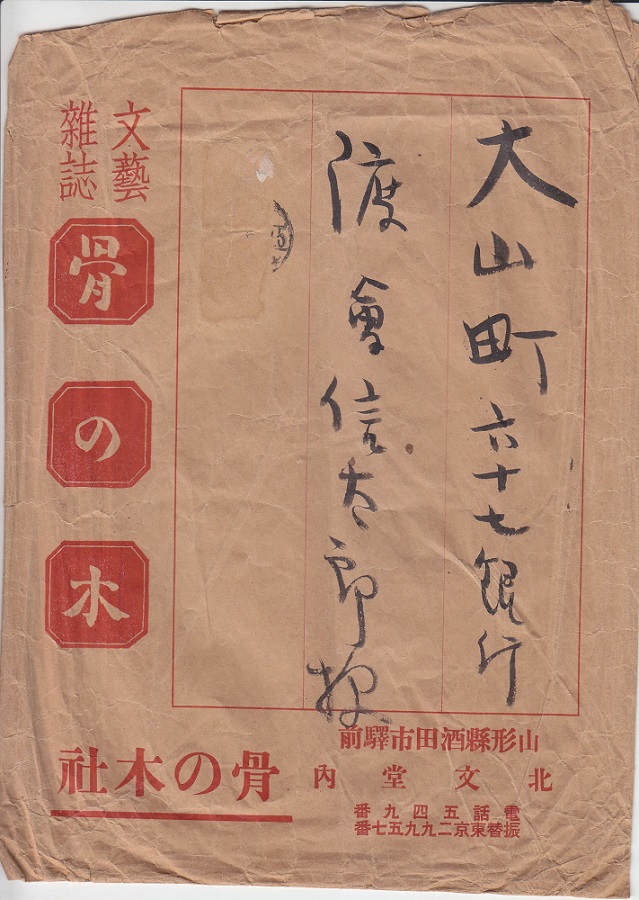 大山町六十七銀行
渡會信太郎様
文藝
雜誌
骨の木
山形縣酒田市驛前
北文堂內
骨の木社
電話五四九番
振替東京二九九五七番